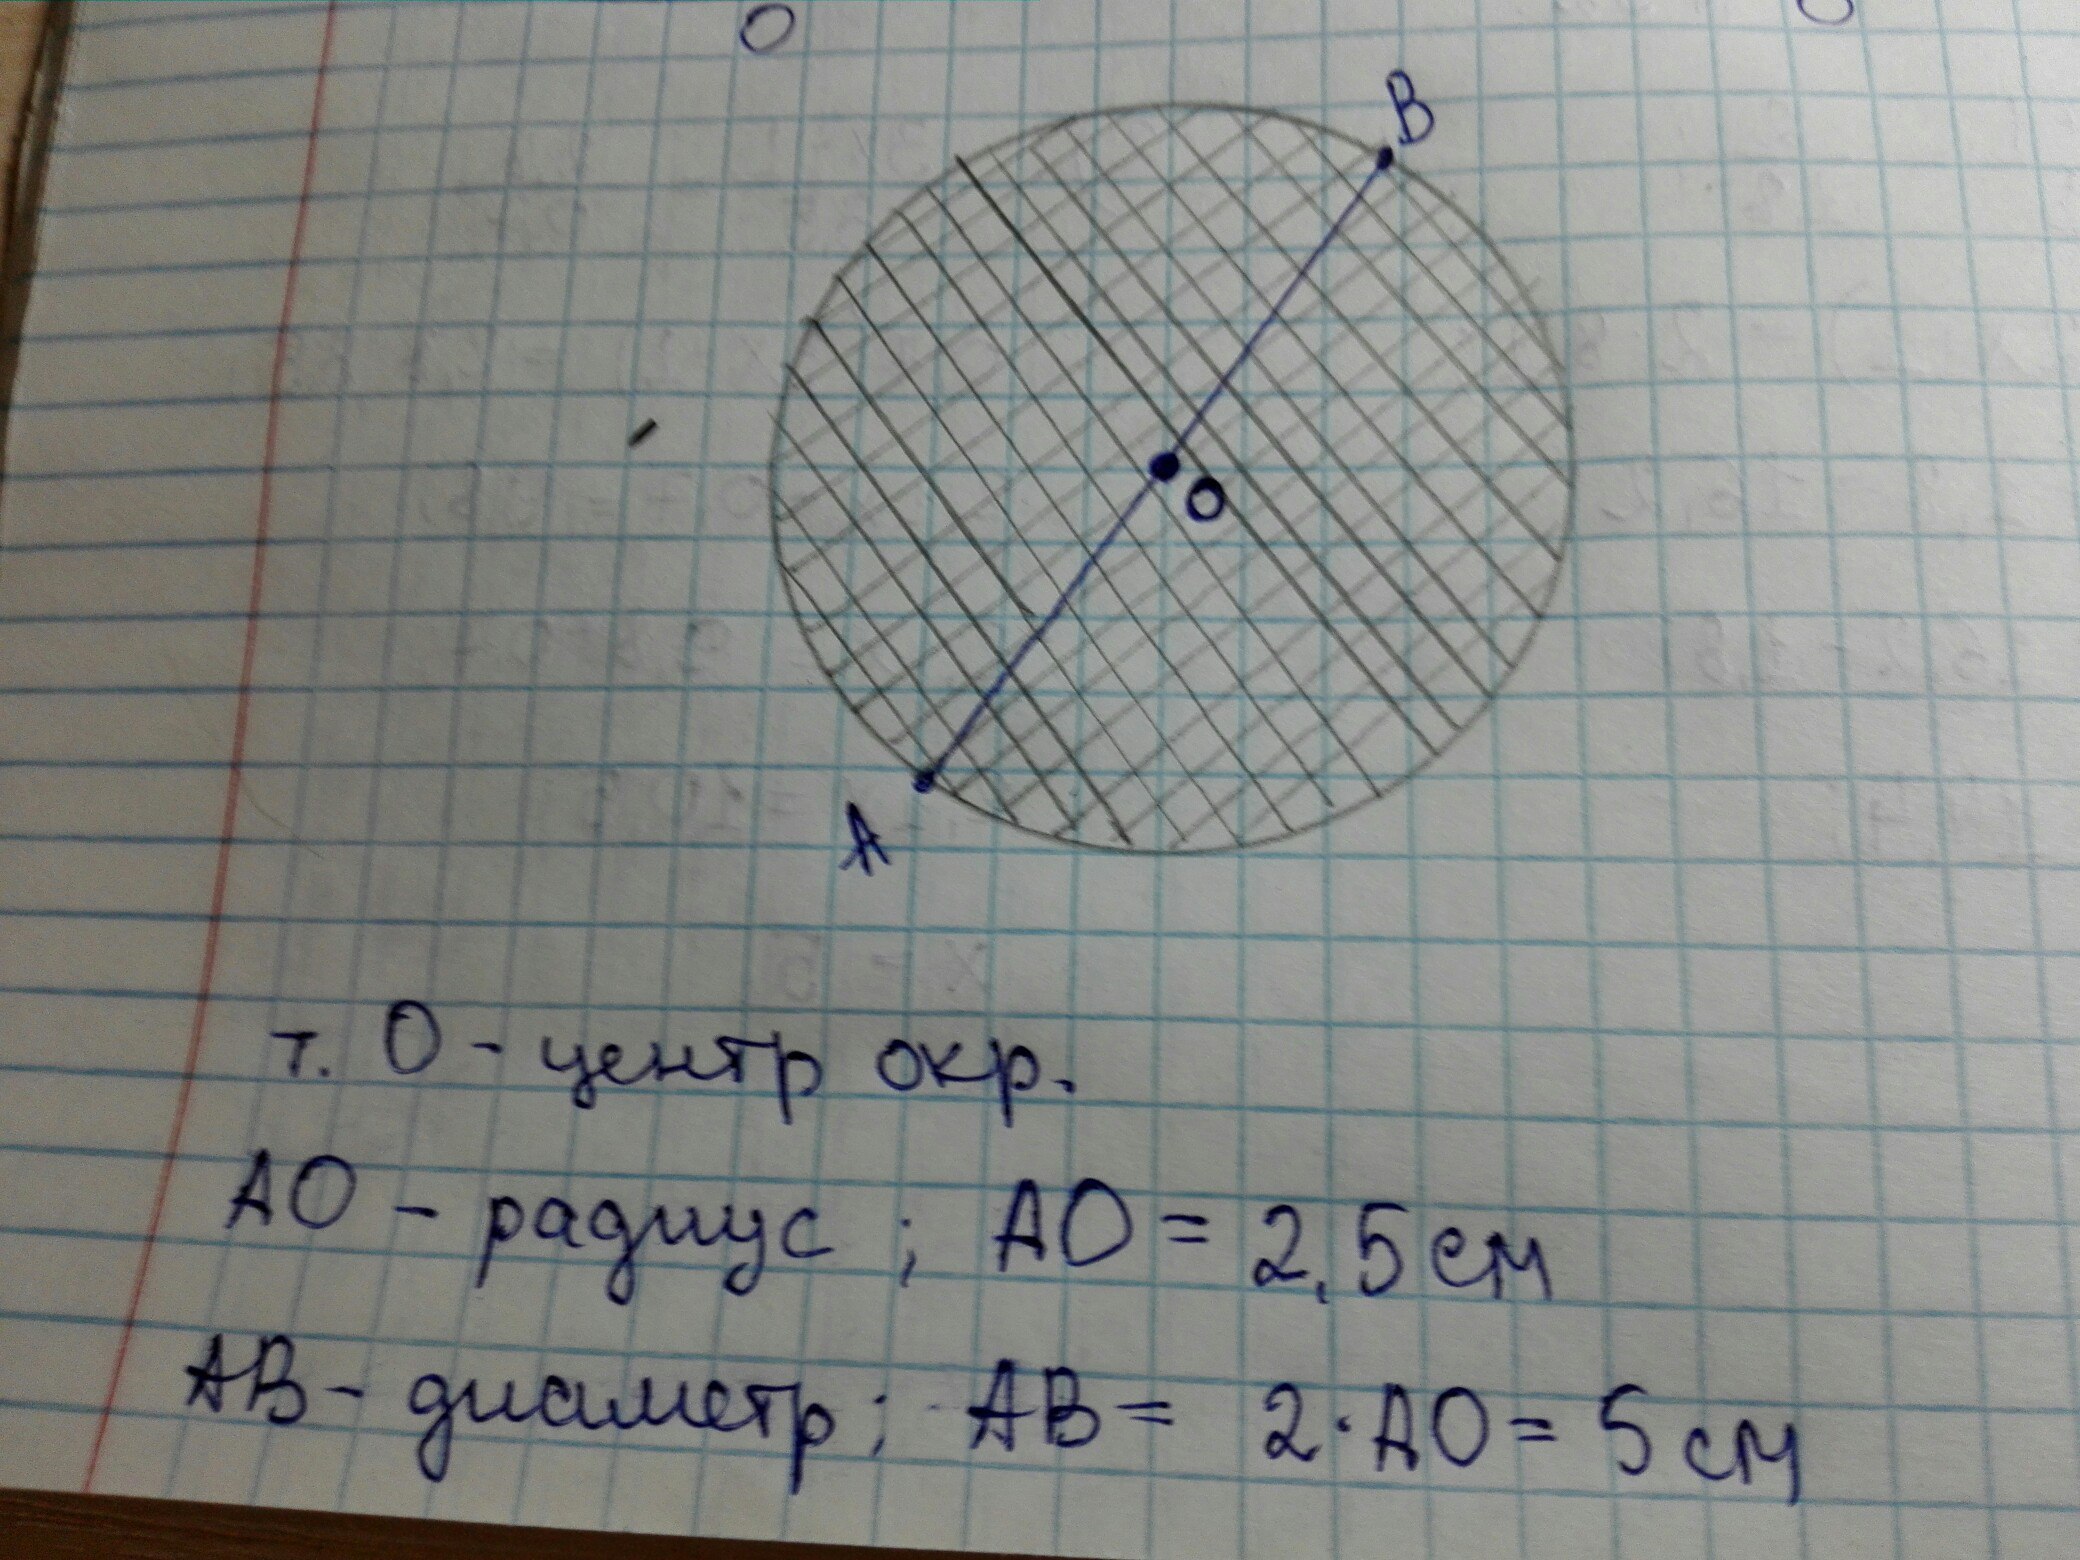 B
O
A
т. О - центр окр.
АО - радиус ; АО = 2,5 см
АВ - диаметр ; АВ = 2·АО = 5 см